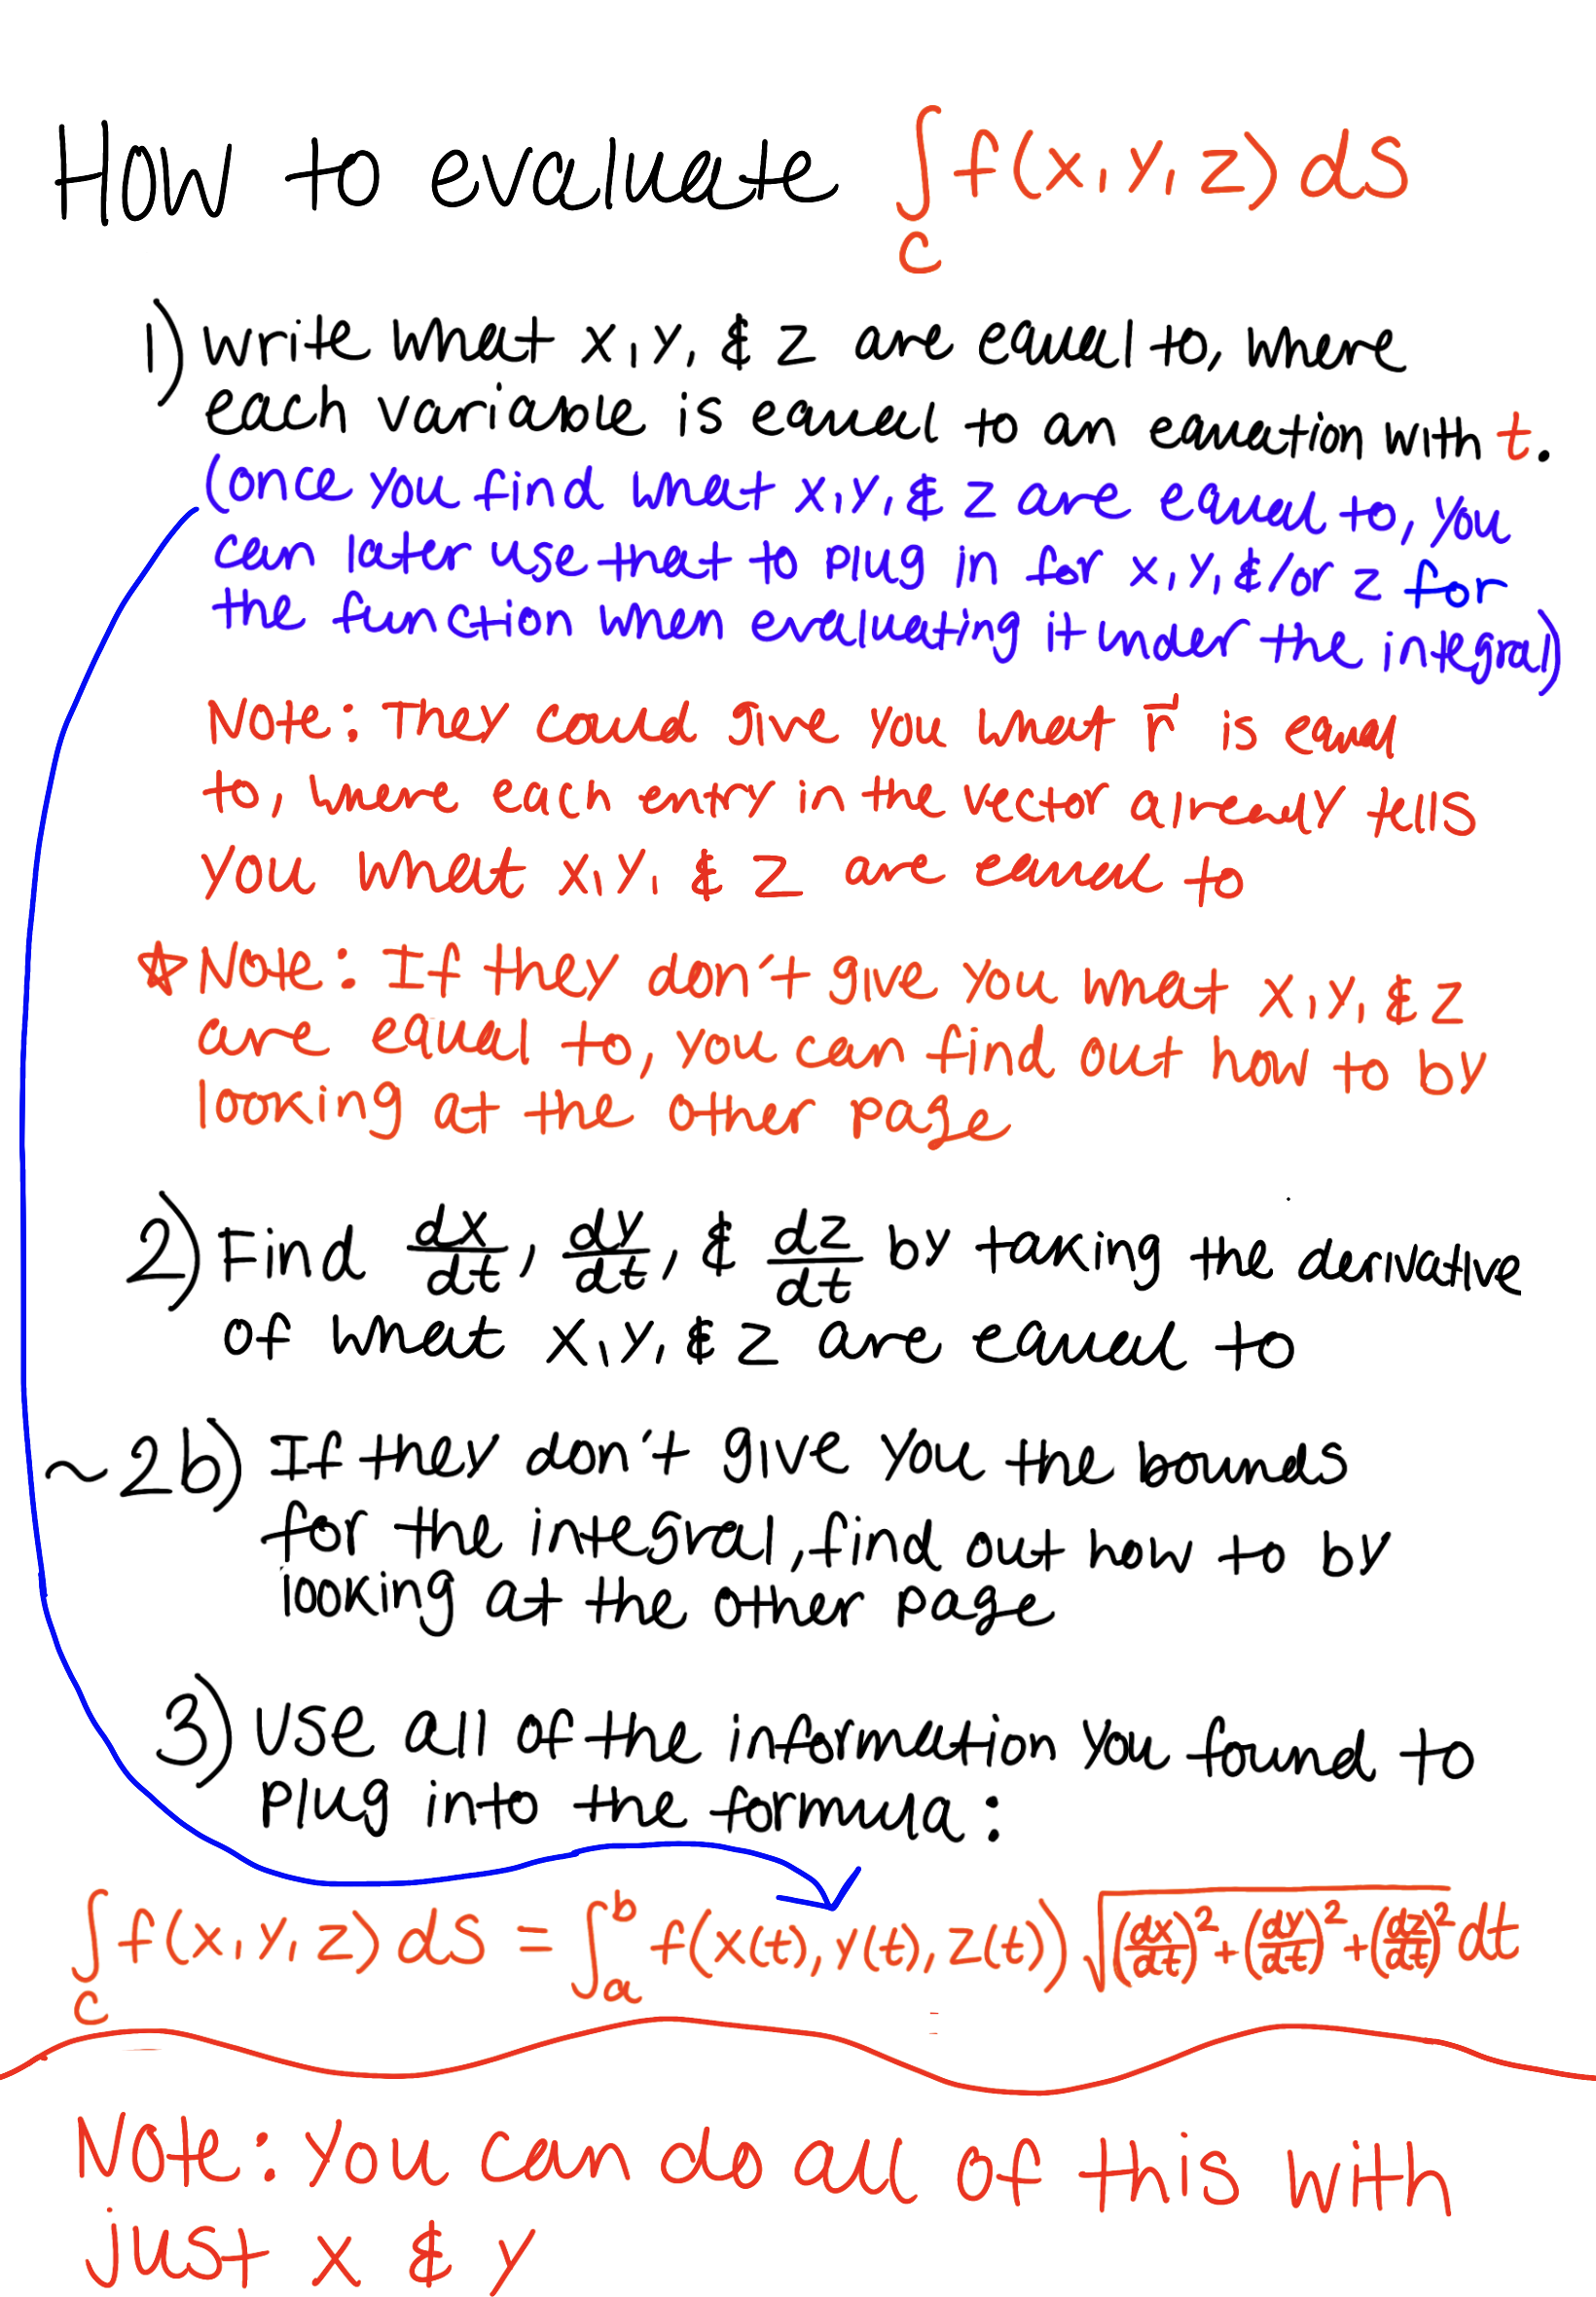 How to evaluate ∫_C f(x,y,z) ds
1) write what x,y, & z are equal to, where
each variable is equal to an equation with t.
(once you find what x,y, & z are equal to, you
can later use that to plug in for x,y, &/or z for
the function when evaluating it under the integral)
Note: They could give you what r⃗ is equal
to, where each entry in the vector already tells
you what x,y, & z are equal to
☆ Note: If they don't give you what x,y, & z
are equal to, you can find out how to by
looking at the other page
2) Find dx/dt, dy/dt, & dz/dt by taking the derivative
of what x,y, & z are equal to
~2b) If they don't give you the bounds
for the integral, find out how to by
looking at the other page
3) Use all of the information you found to
plug into the formula:
∫_C f(x,y,z) ds = ∫_a^b f(x(t), y(t), z(t)) √((dx/dt)² + (dy/dt)² + (dz/dt)²) dt
Note: You can do all of this with
just x & y